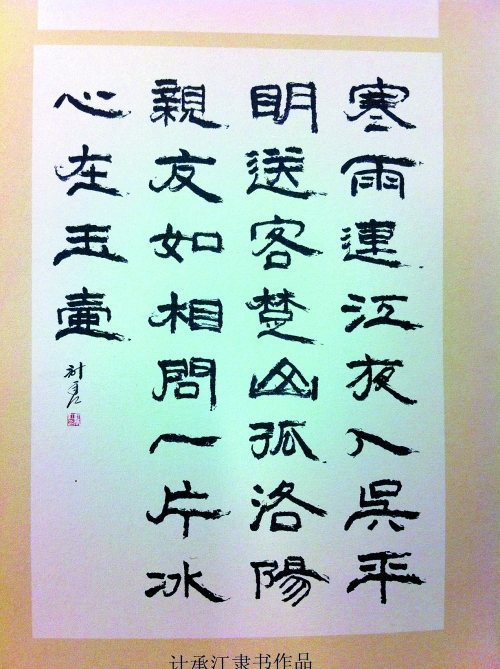 寒雨連江夜入吳平
明送客楚山孤洛陽
親友如相問一片冰
心在玉壷
计承江隶书作品